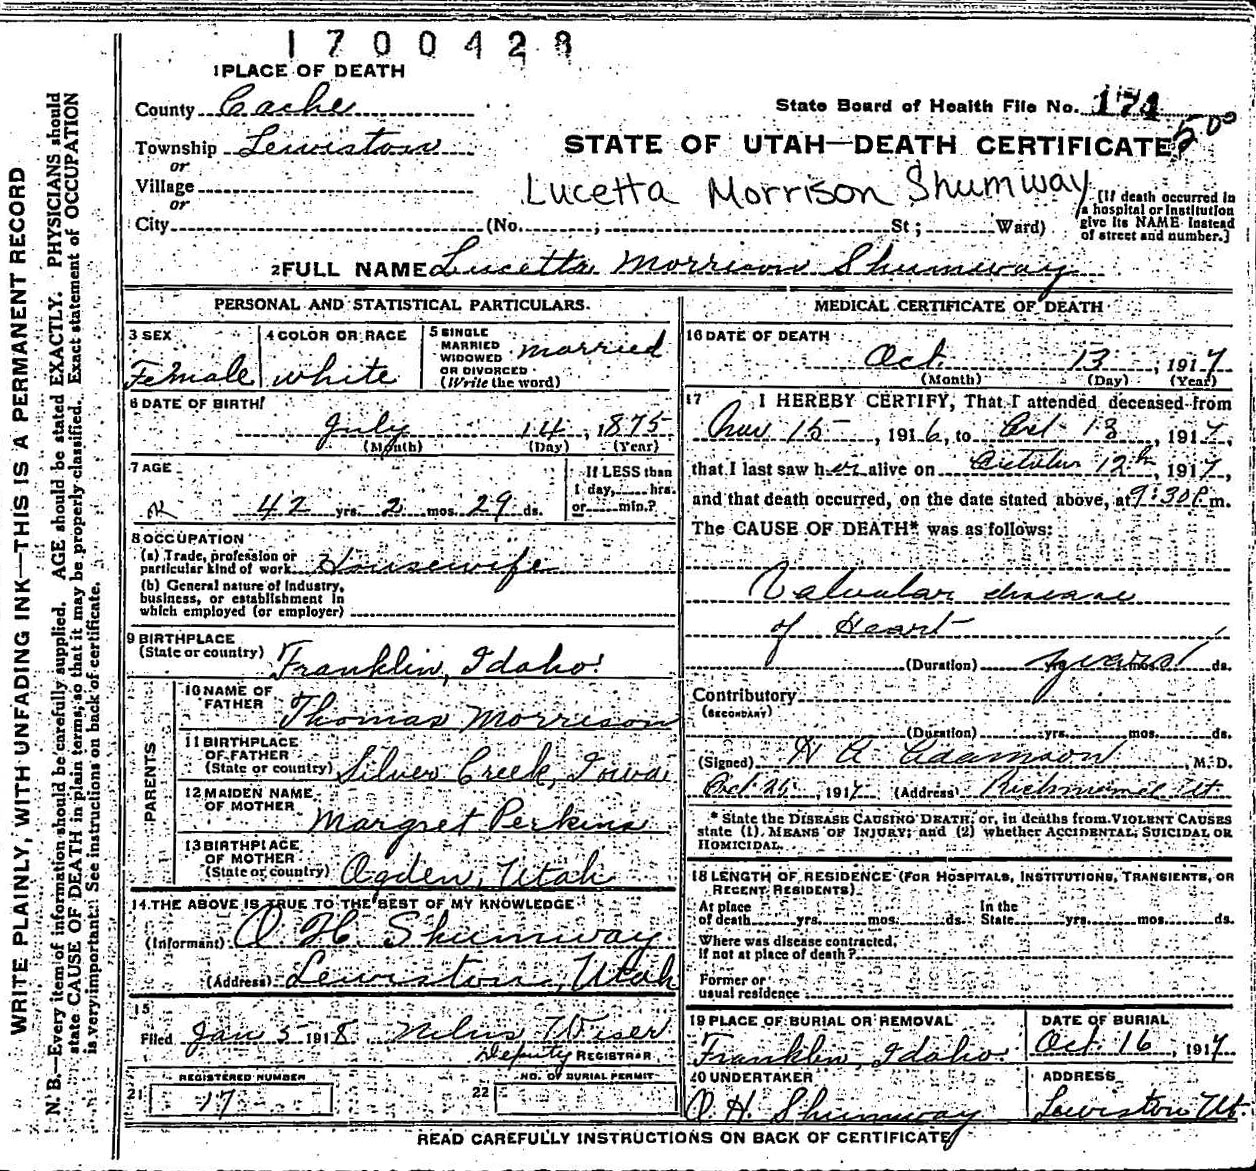 1700428
1 PLACE OF DEATH
County Cache
State Board of Health File No. 171
Township Lewiston
500
STATE OF UTAH—DEATH CERTIFICATE
or
Village
Lucetta Morrison Shumway
or
City (No. ; St ; Ward)
[If death occurred in
a hospital or institution
give its NAME instead
of street and number.]
2 FULL NAME Lucetta Morrison Shumway
PERSONAL AND STATISTICAL PARTICULARS.
3 SEX
Female
4 COLOR OR RACE
white
5 SINGLE
MARRIED
WIDOWED
OR DIVORCED
(Write the word)
married
6 DATE OF BIRTH
July 14, 1875
(Month) (Day) (Year)
7 AGE
OK 42 yrs. 2 mos. 29 ds.
If LESS than
1 day, hrs.
or min.?
8 OCCUPATION
(a) Trade, profession or
particular kind of work Housewife
(b) General nature of industry,
business, or establishment in
which employed (or employer)
9 BIRTHPLACE
(State or country) Franklin, Idaho.
PARENTS
10 NAME OF
FATHER
Thomas Morrison
11 BIRTHPLACE
OF FATHER
(State or country) Silver Creek, Iowa
12 MAIDEN NAME
OF MOTHER
Margret Perkins
13 BIRTHPLACE
OF MOTHER
(State or country) Ogden, Utah
14 THE ABOVE IS TRUE TO THE BEST OF MY KNOWLEDGE
(Informant) O H. Shumway
(Address) Lewiston, Utah
15
Filed Jan 5 1918. Nilus Wiser
Deputy REGISTRAR
REGISTERED NUMBER
21 17
NO. OF BURIAL PERMIT
22
MEDICAL CERTIFICATE OF DEATH
16 DATE OF DEATH
Oct. 13, 1917
(Month) (Day) (Year)
17 I HEREBY CERTIFY, That I attended deceased from
Nov 15, 1916, to Oct 13, 1917,
that I last saw her alive on October 12th, 1917,
and that death occurred, on the date stated above, at 9:30 P.m.
The CAUSE OF DEATH* was as follows:
Valvular disease
of Heart
(Duration) yrs. mos. ds.
years
Contributory
(SECONDARY)
(Duration) yrs. mos. ds.
(Signed) W A Adamson, M.D.
Oct 25, 1917 (Address) Richmond Ut.
* State the DISEASE CAUSING DEATH; or, in deaths from VIOLENT CAUSES
state (1) MEANS OF INJURY; and (2) whether ACCIDENTAL, SUICIDAL OR
HOMICIDAL.
18 LENGTH OF RESIDENCE (FOR HOSPITALS, INSTITUTIONS, TRANSIENTS, OR
RECENT RESIDENTS)
At place
of death yrs. mos. ds.
In the
State yrs. mos. ds.
Where was disease contracted,
if not at place of death?
Former or
usual residence
19 PLACE OF BURIAL OR REMOVAL
Franklin, Idaho
DATE OF BURIAL
Oct. 16, 1917
20 UNDERTAKER
O. H. Shumway
ADDRESS
Lewiston Ut.
READ CAREFULLY INSTRUCTIONS ON BACK OF CERTIFICATE
WRITE PLAINLY, WITH UNFADING INK—THIS IS A PERMANENT RECORD
N. B.—Every item of information should be carefully supplied. AGE should be stated EXACTLY. PHYSICIANS should
state CAUSE OF DEATH in plain terms, so that it may be properly classified. Exact statement of OCCUPATION
is very important. See instructions on back of certificate.